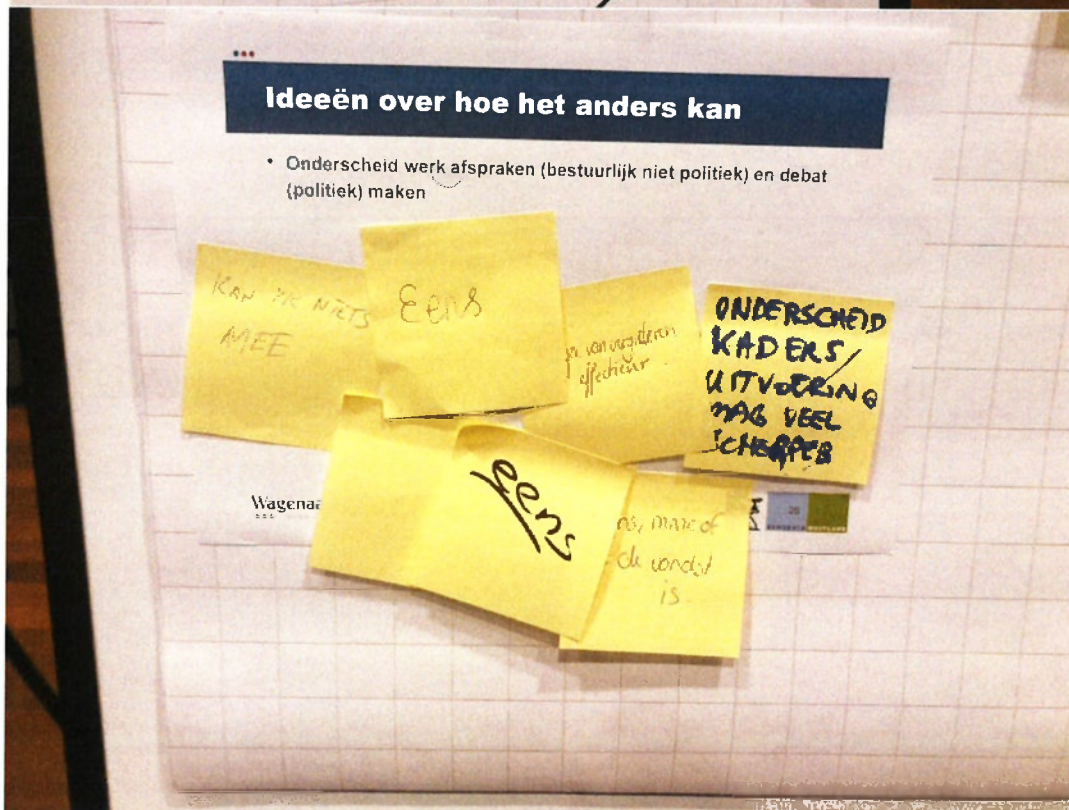 Ideeën over hoe het anders kan
• Onderscheid werk afspraken (bestuurlijk niet politiek) en debat
(politiek) maken
KAN ER NIETS
MEE
Eens
van vergaderen
effectiever
ONDERSCHEID
KADERS/
UITVOERING
MAG VEEL
SCHERPER
Wagenaa
eens
maar of
is
26